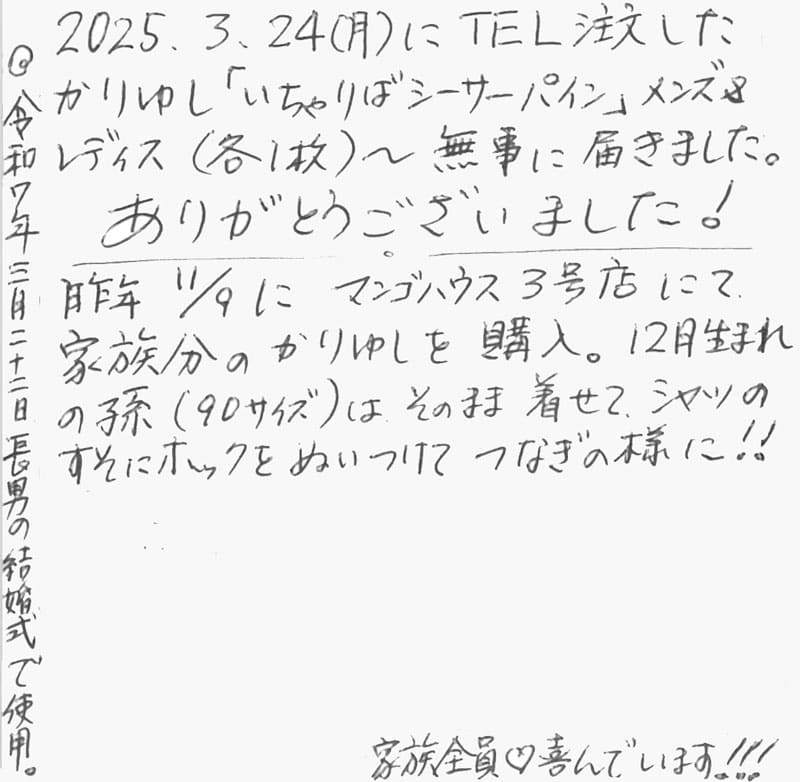 2025.3.24(月)にTEL注文した
かりゆし「いちゃりばシーサーパイン」メンズ&
レディス(各1枚)〜無事に届きました。
ありがとうございました!
昨年11/9にマンゴハウス3号店にて
家族分のかりゆしを購入。12月生まれ
の孫(90サイズ)はそのまま着せて、シャツの
すそにホックをぬいつけてつなぎの様に!!
家族全員♡喜んでいます!!!
◎令和7年三月二十二日長男の結婚式で使用。